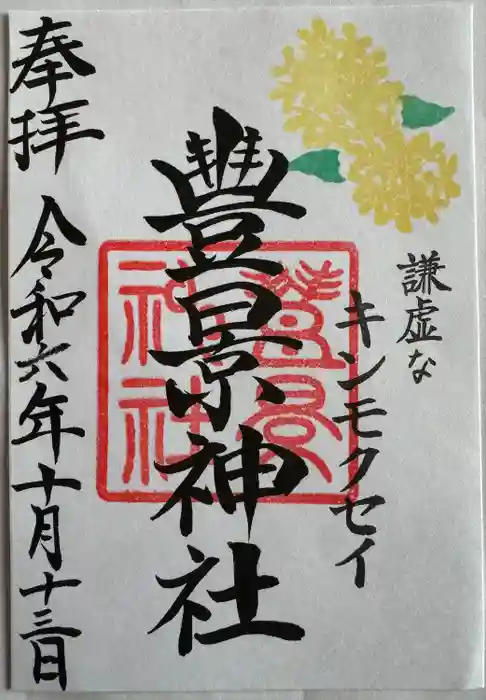 謙虚な
キンモクセイ
豐景神社
豐景神社
奉拝 令和六年十月十三日